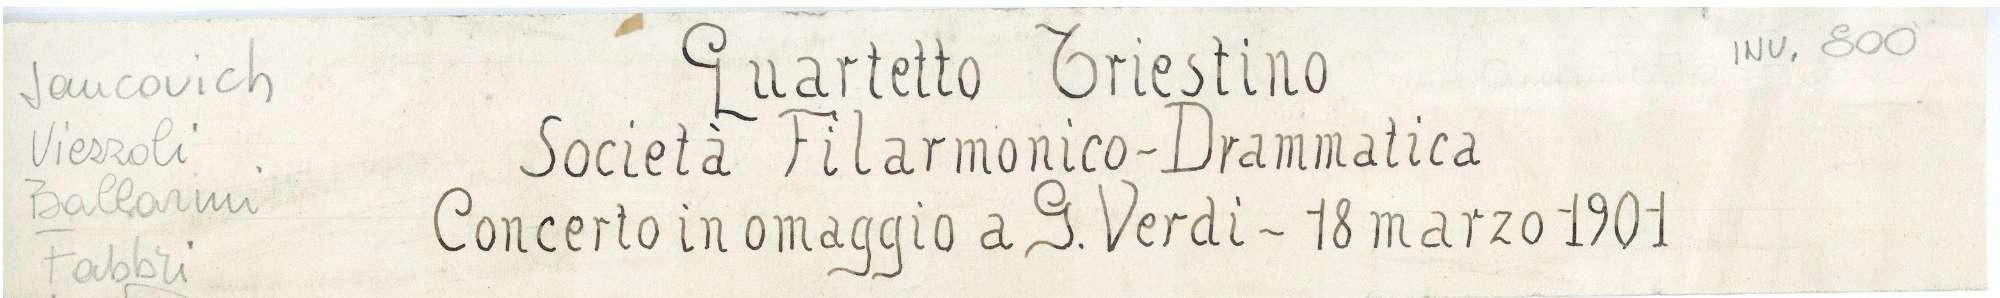 Jancovich
Viezzoli
Ballarini
Fabbri
Quartetto Triestino
Società Filarmonico-Drammatica
Concerto in omaggio a G. Verdi - 18 marzo 1901
INV. 800